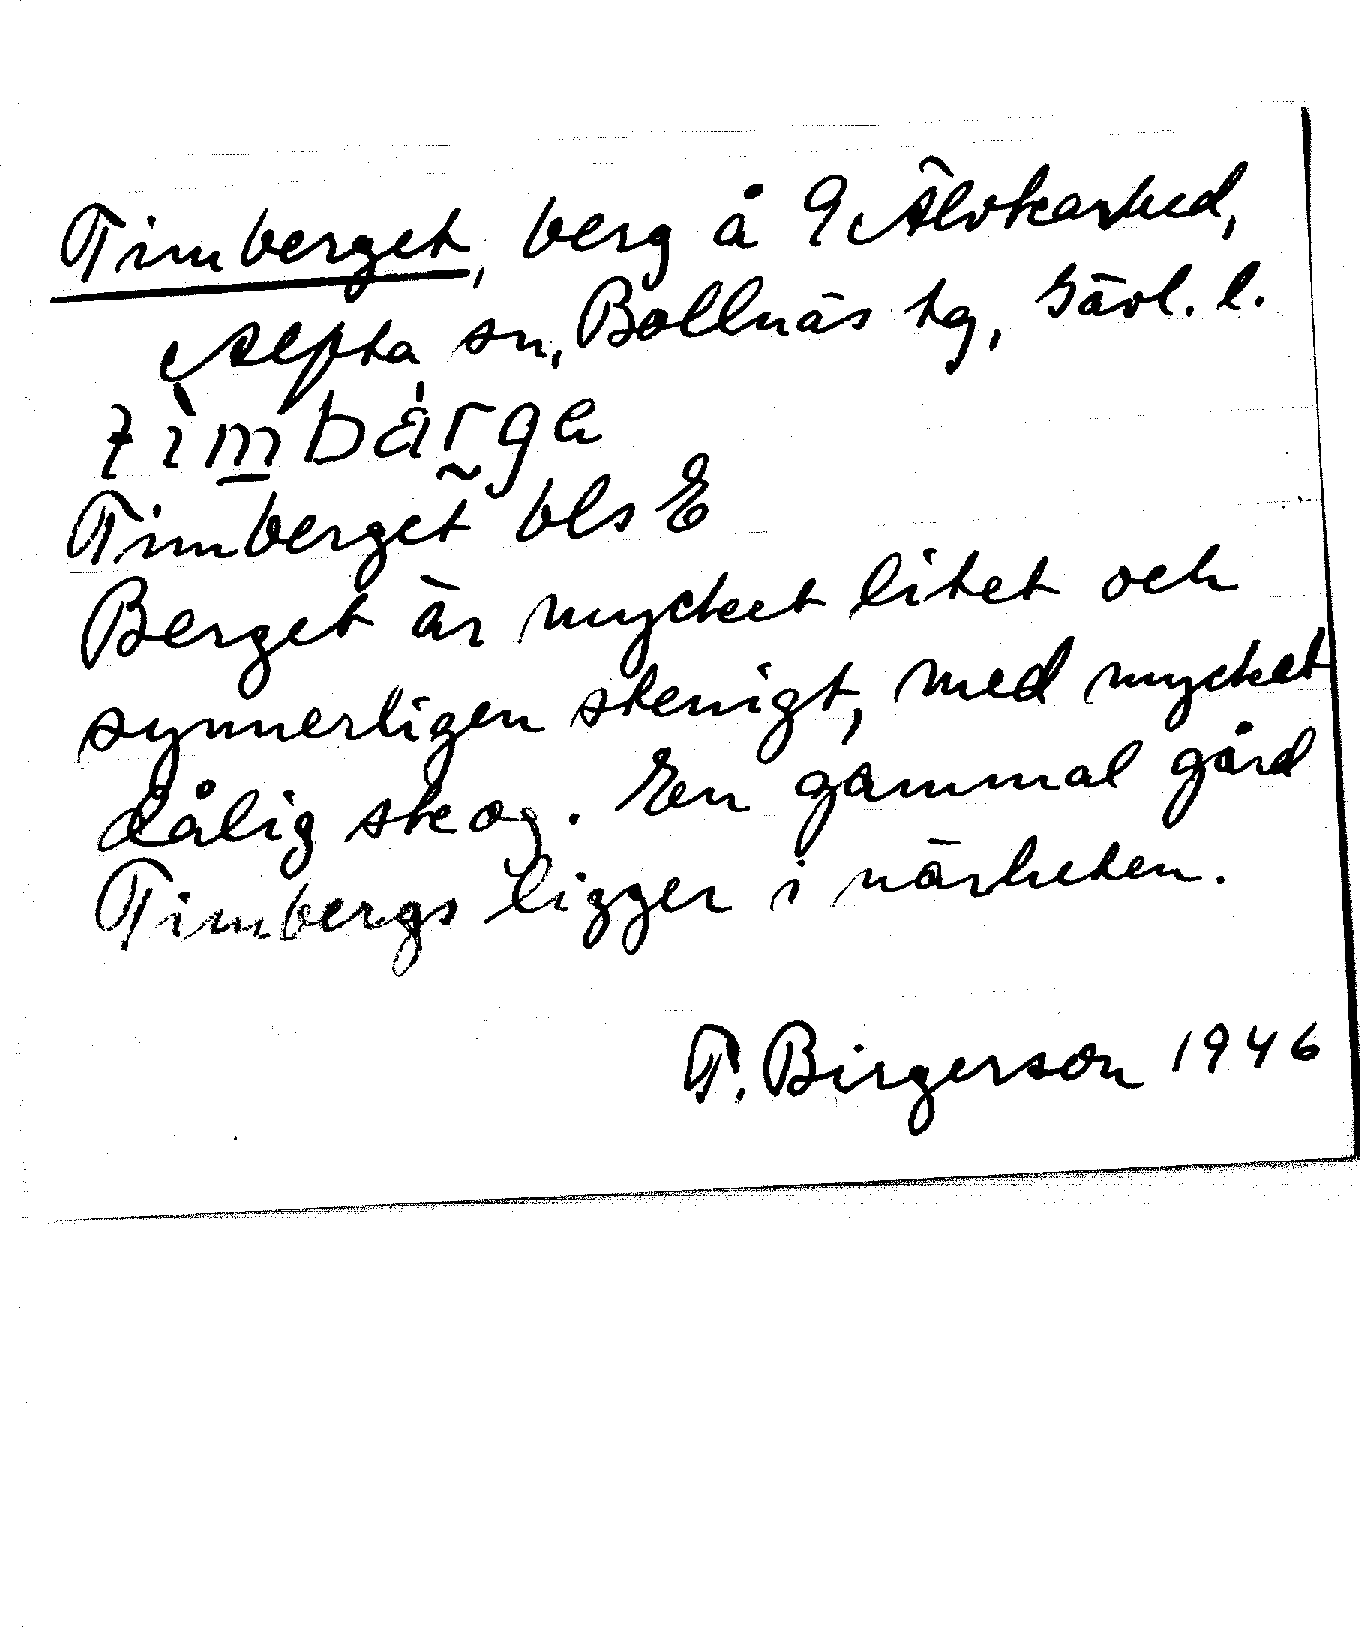 Timberget, berg å 9 Älvkarhed,
Alfta sn, Bollnäs tg, Gävl. l.
tìmbárga
Timberget bls E
Berget är mycket litet och
synnerligen stenigt, med mycket
dålig skog. En gammal gård
Timbergs ligger i närheten.
T. Birgerson 1946